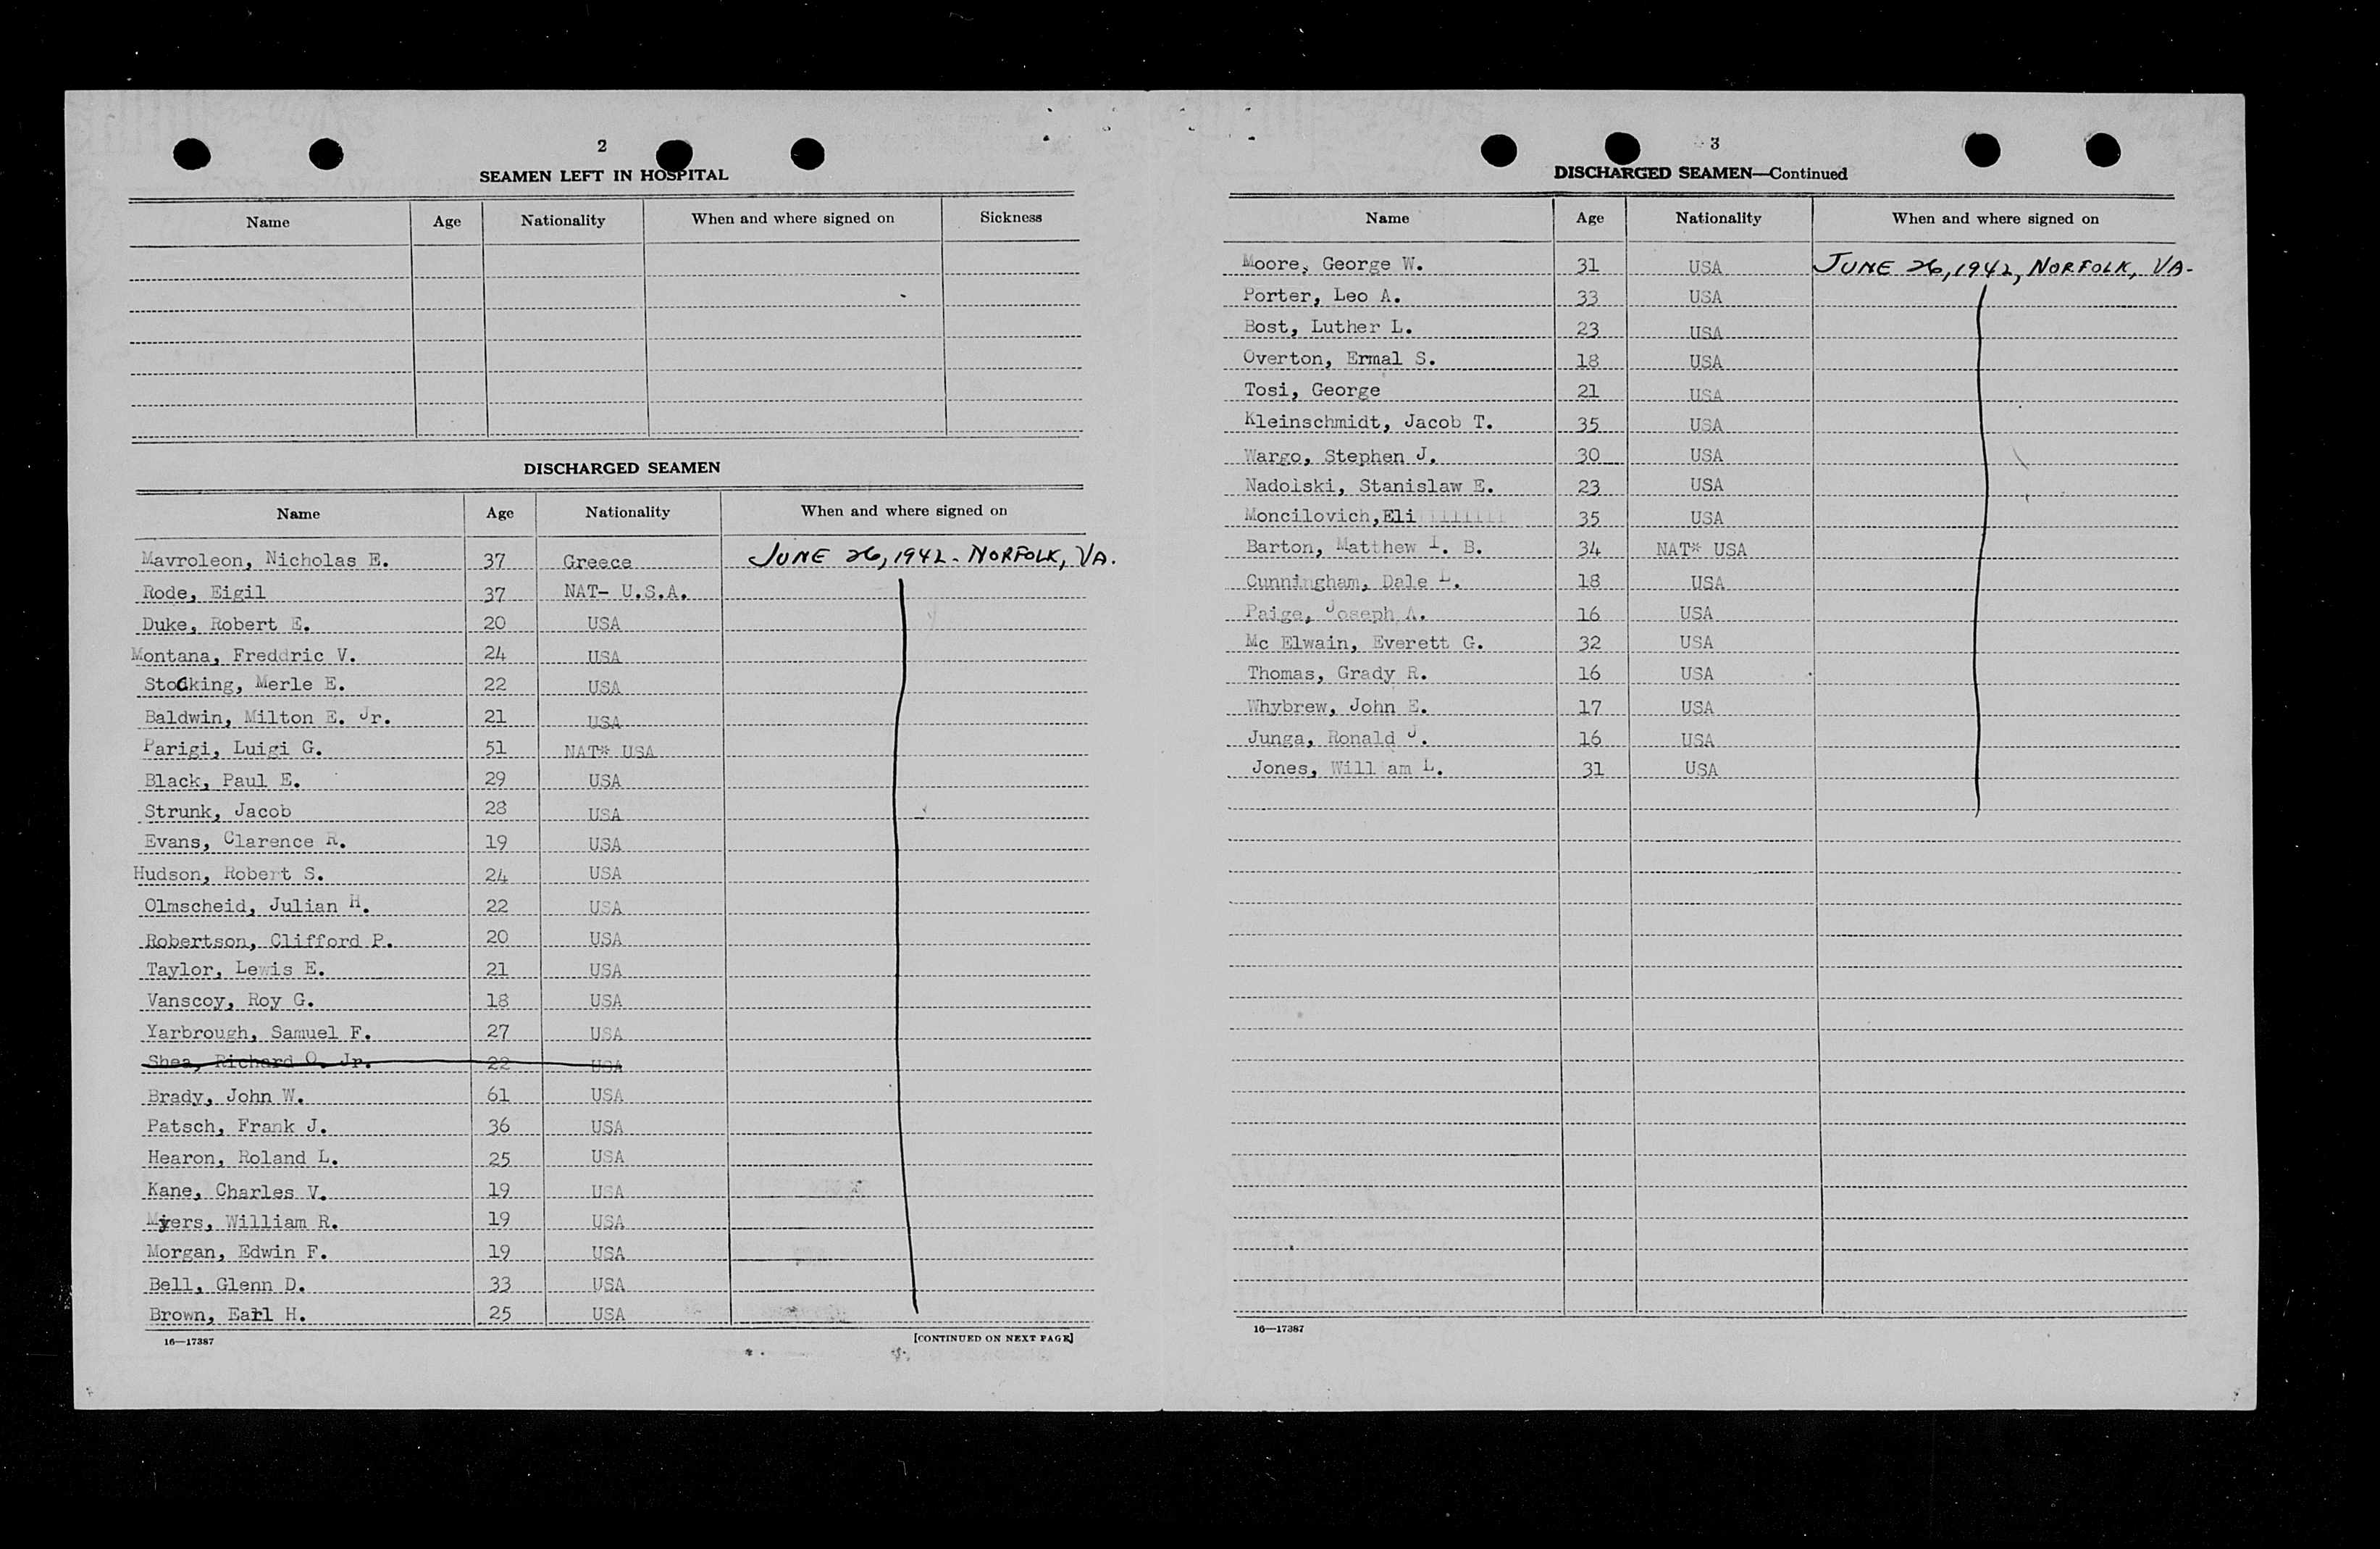 2
SEAMEN LEFT IN HOSPITAL
Name Age Nationality When and where signed on Sickness
DISCHARGED SEAMEN
Name Age Nationality When and where signed on
Mavroleon, Nicholas E. 37 Greece JUNE 26, 1942 - NORFOLK, VA.
Rode, Eigil 37 NAT- U.S.A.
Duke, Robert E. 20 USA
Montana, Freddric V. 24 USA
Stocking, Merle E. 22 USA
Baldwin, Milton E. Jr. 21 USA
Parigi, Luigi G. 51 NAT* USA
Black, Paul E. 29 USA
Strunk, Jacob 28 USA
Evans, Clarence R. 19 USA
Hudson, Robert S. 24 USA
Olmscheid, Julian H. 22 USA
Robertson, Clifford P. 20 USA
Taylor, Lewis E. 21 USA
Vanscoy, Roy G. 18 USA
Yarbrough, Samuel F. 27 USA
Shea, Richard O. Jr. 22 USA
Brady, John W. 61 USA
Patsch, Frank J. 36 USA
Hearon, Roland L. 25 USA
Kane, Charles V. 19 USA
Myers, William R. 19 USA
Morgan, Edwin F. 19 USA
Bell, Glenn D. 33 USA
Brown, Earl H. 25 USA
16—17387 [CONTINUED ON NEXT PAGE]
3
DISCHARGED SEAMEN—Continued
Name Age Nationality When and where signed on
Moore, George W. 31 USA JUNE 26, 1942, NORFOLK, VA-
Porter, Leo A. 33 USA
Bost, Luther L. 23 USA
Overton, Ermal S. 18 USA
Tosi, George 21 USA
Kleinschmidt, Jacob T. 35 USA
Wargo, Stephen J. 30 USA
Nadolski, Stanislaw E. 23 USA
Moncilovich, Eli 35 USA
Barton, Matthew I. B. 34 NAT* USA
Cunningham, Dale L. 18 USA
Paige, Joseph A. 16 USA
Mc Elwain, Everett G. 32 USA
Thomas, Grady R. 16 USA
Whybrew, John E. 17 USA
Junga, Ronald J. 16 USA
Jones, Will am L. 31 USA
16—17387